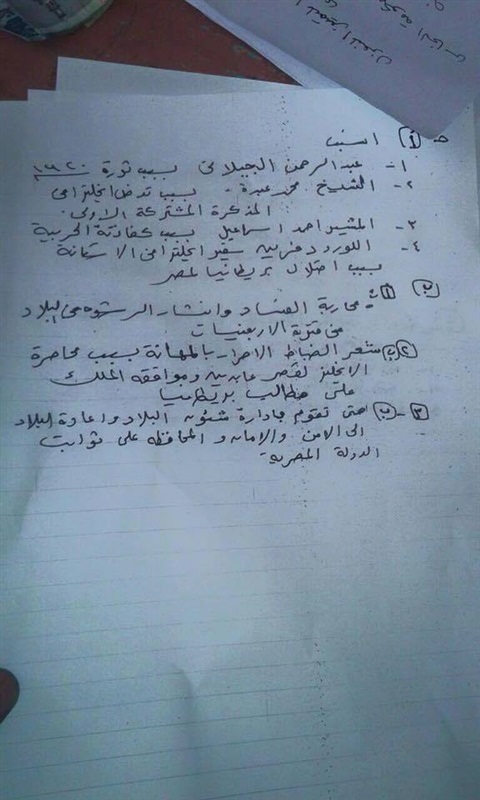 أ) انسب
١- عبد الرحمن الجيلانى بسبب ثورة ١٩٢٠
٢- الشيخ محمد عبدة - بسبب تدخل انجلترا فى
المذكرة المشتركة الاولى.
٣- المشير احمد اسماعيل بسبب كفائتة الحربية
٤- اللورد دفرين سفير انجلترا فى الاستانة
بسبب احتلال بريطانيا لمصر
ب) محاربة الفساد وانتشار الرشوه فى البلاد
فى فترة الاربعنيات
شعر الضباط الاحرار بالمهانة بسبب محاصرة
الانجليز لقصر عابدين وموافقه الملك
على مطالب بريطانيا
٣- ب) حتى تقوم بادارة شئون البلاد واعادة البلاد
الى الامن والامان والمحافظه على ثوابت
الدولة المصرية.